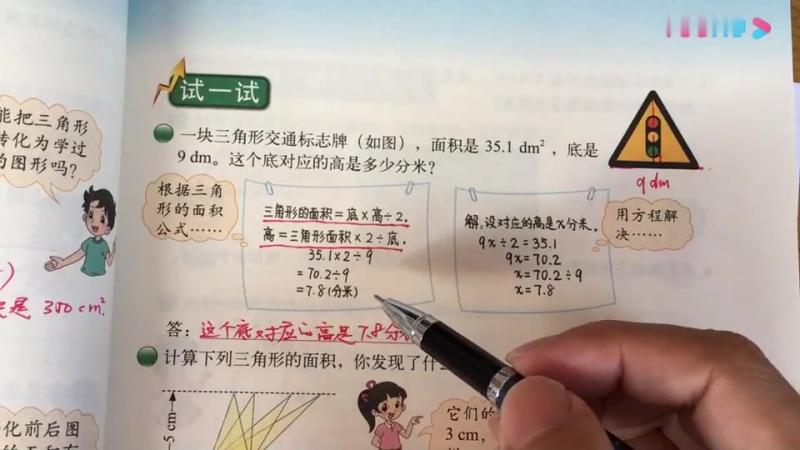 试一试
一块三角形交通标志牌（如图），面积是 35.1 dm²，底是
9 dm。这个底对应的高是多少分米？
9 dm
能把三角形
转化为学过
的图形吗？
根据三角
形的面积
公式……
三角形的面积=底×高÷2.
高=三角形面积×2÷底.
35.1×2÷9
=70.2÷9
=7.8(分米)
解:设对应的高是x分米.
9x÷2=35.1
9x=70.2
x=70.2÷9
x=7.8
用方程解
决……
是 300 cm².
答：这个底对应的高是7.8分
计算下列三角形的面积，你发现了什
5 cm
它们的
3 cm,
化前后图